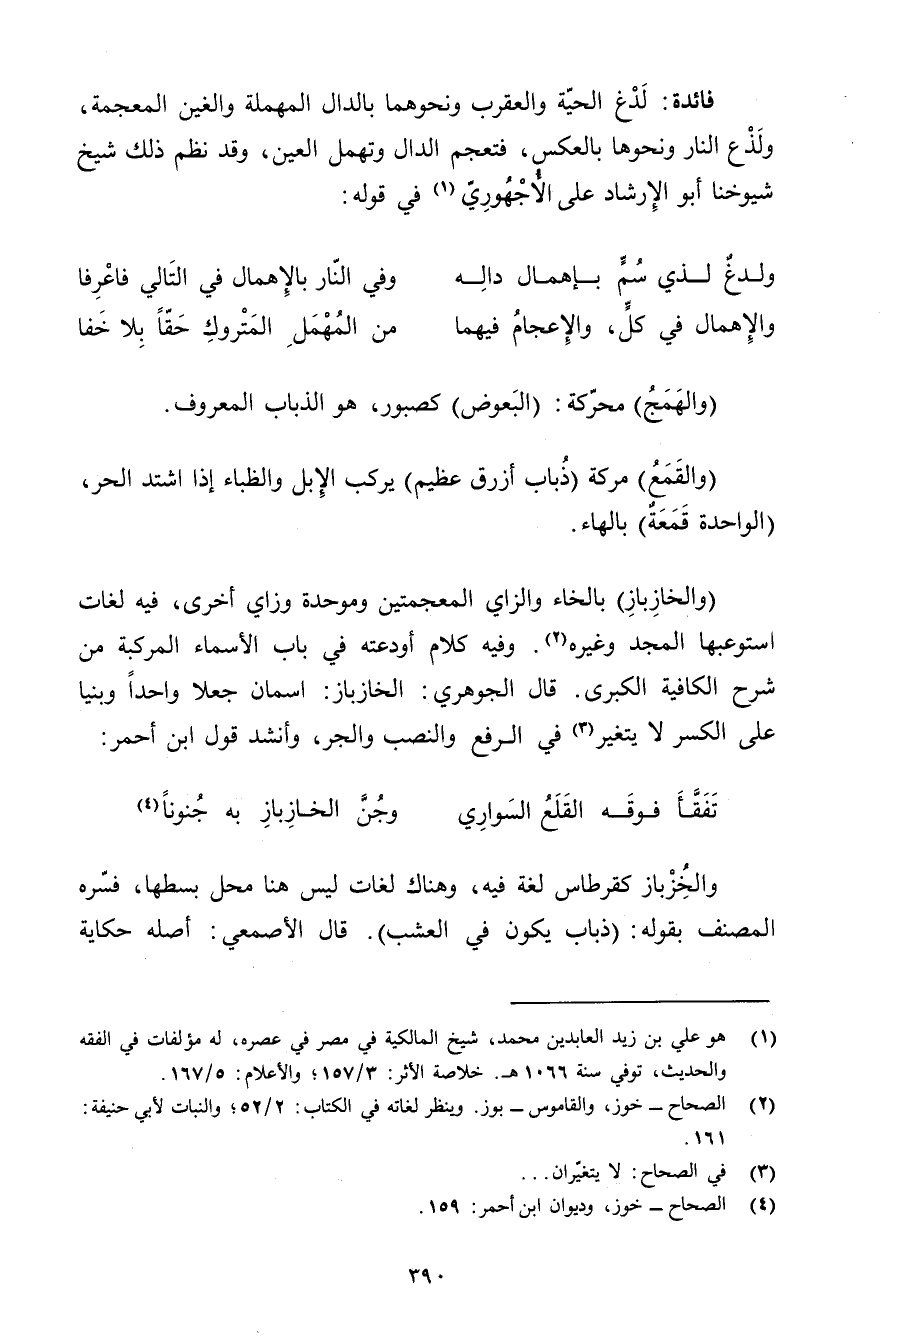 فائدة: لَدْغ الحيّة والعقرب ونحوهما بالدال المهملة والغين المعجمة،
ولَذْع النار ونحوها بالعكس، فتعجم الدال وتهمل العين، وقد نظم ذلك شيخ
شيوخنا أبو الإرشاد على الأُجْهُورِيّ (١) في قوله:
ولـدغٌ لــذي سُمٍّ بــإهمـال دالِــه وفي النّار بالإهمال في التَالي فاعْرِفا
والإهمال في كلٍّ، والإعجامُ فيهما من المُهْمَلِ المَتْروكِ حَقّاً بِلا خَفا
(والهَمَجُ) محرّكة: (البَعوض) كصبور، هو الذباب المعروف.
(والقَمَعُ) مركة (ذُباب أزرق عظيم) يركب الإبل والظباء إذا اشتد الحر،
(الواحدة قَمَعَةٌ) بالهاء.
(والخازِبازِ) بالخاء والزاي المعجمتين وموحدة وزاي أخرى، فيه لغات
استوعبها المجد وغيره(٢). وفيه كلام أودعته في باب الأسماء المركبة من
شرح الكافية الكبرى. قال الجوهري: الخازباز: اسمان جعلا واحداً وبنيا
على الكسر لا يتغير(٣) في الـرفع والنصب والجر، وأنشد قول ابن أحمر:
تَفَقَّـأَ فـوقَــه القَلَعُ السَواري وجُنَّ الخـازِبازِ به جُنوناً(٤)
والخُِزْباز كقرطاس لغة فيه، وهناك لغات ليس هنا محل بسطها، فسّره
المصنف بقوله: (ذباب يكون في العشب). قال الأصمعي: أصله حكاية
(١) هو علي بن زيد العابدين محمد، شيخ المالكية في مصر في عصره، له مؤلفات في الفقه
والحديث، توفي سنة ١٠٦٦ هـ. خلاصة الأثر: ١٥٧/٣؛ والأعلام: ١٦٧/٥.
(٢) الصحاح – خوز، والقاموس – بوز. وينظر لغاته في الكتاب: ٥٢/٢؛ والنبات لأبي حنيفة:
١٦١.
(٣) في الصحاح: لا يتغيّران...
(٤) الصحاح – خوز، وديوان ابن أحمر: ١٥٩.
٣٩٠